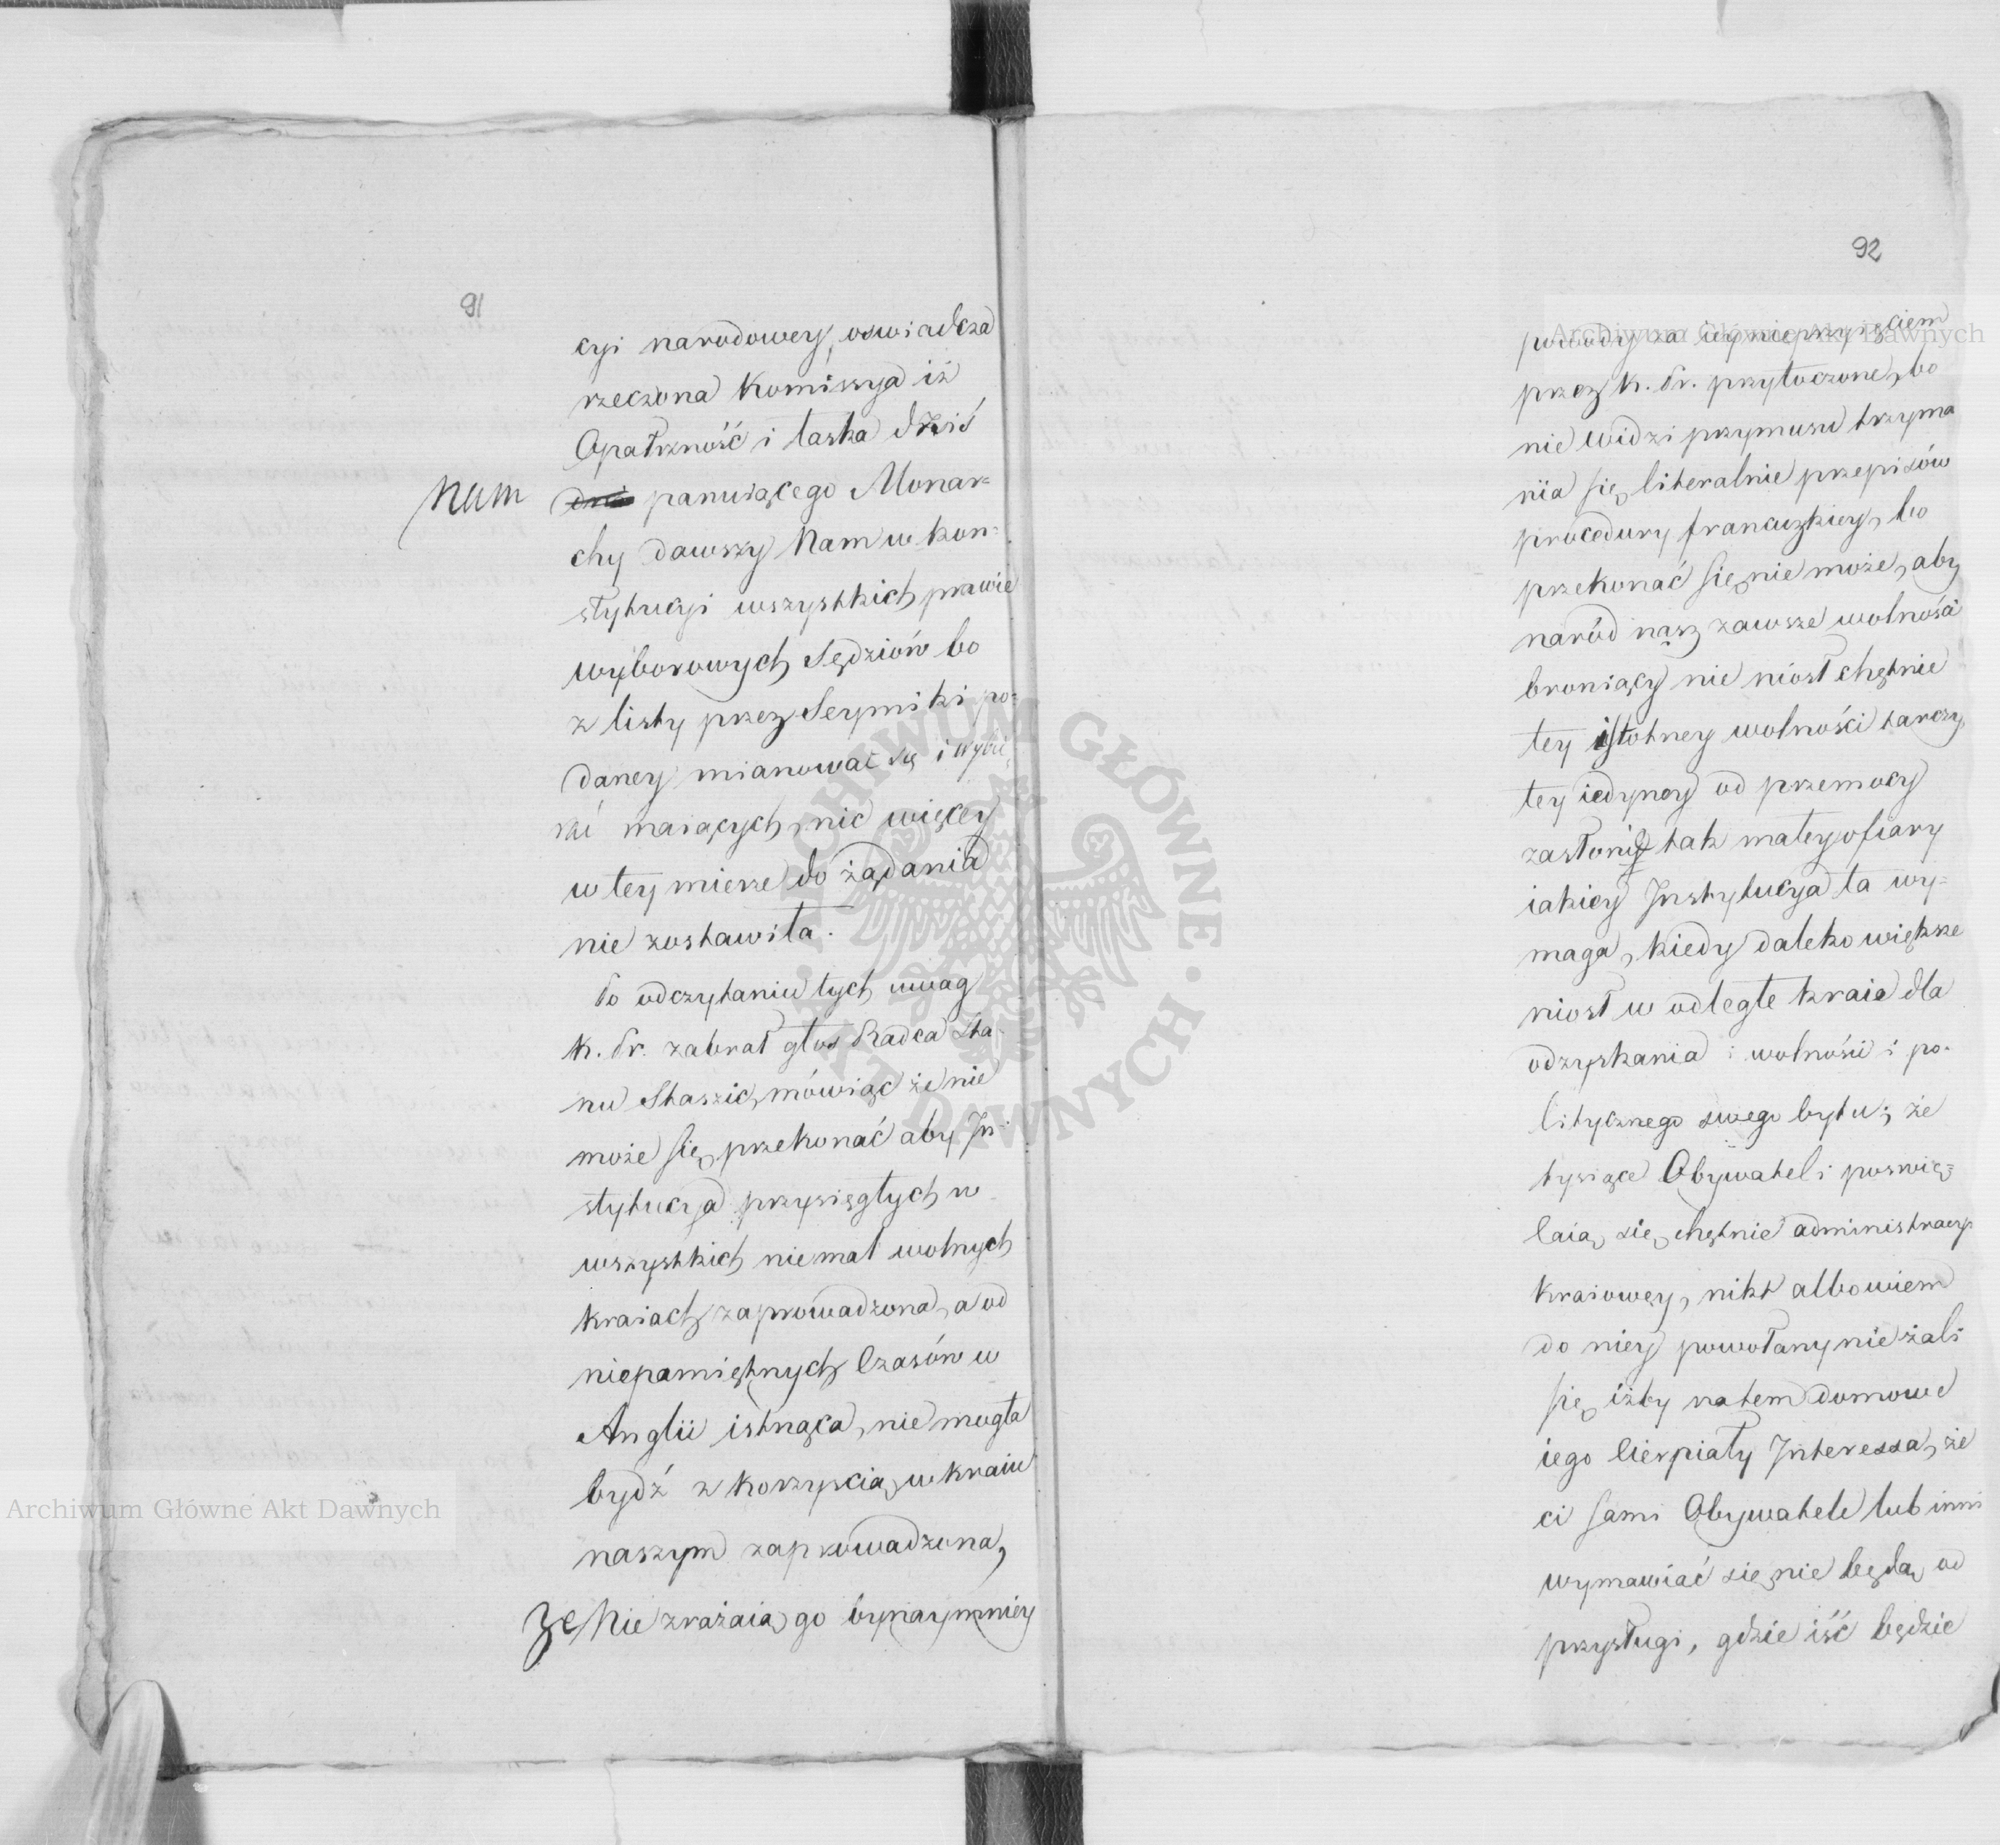 91
cyi narodowey, oswiadcza
rzeczona Kommissya iż
Opatrzność i łaska dziś
Nam
panuiącego Monar=
chy dawszy Nam w kon=
stytucyi wszystkich prawie
wyborowych Sędziów bo
z listy przez Seymiki po=
daney mianować się i wybie
rać maiących, nic więcey
w tey mierze do żądania
nie zostawiła.
Po odczytaniu tych uwag
K. Pr. zabrał głos Radca Sta=
nu Staszic, mówiąc że nie
może się przekonać aby In=
stytucya przysięgłych w
wszystkich niemal wolnych
kraiach zaprowadzona, a od
niepamiętnych Czasów w
Anglii istnąca, nie mogła
bydź z korzyścią w kraiu
naszym zaprowadzona,
że Nie zrażaią go bynaymniey
92
powody za iey nieprzyięciem
przez K. Pr. przytoczone, bo
nie widzi przymusu trzyma
nia się literalnie przepisów
procedury francuzkiey, bo
przekonać się nie może, aby
naród nasz zawsze wolności
broniący nie niosł chętnie
tey istotney wolności tarczy,
tey iedyney od przemocy
zasłony tak małey ofiary
iakiey Instytucya ta wy=
maga, kiedy daleko większe
niosł w odległe kraie dla
odzyskania i wolności i po=
litycznego swego bytu; że
tysiące Obywateli poswię=
caią się chętnie administracyi
kraiowey, nikt albowiem
do niey powołany nie żali
się iżby na tem domowe
iego Cierpiały Interessa, że
ci sami Obywatele lub inni
wymawiać się nie będą od
przysługi, gdzie iść będzie
Archiwum Główne Akt Dawnych
Archiwum Główne Akt Dawnych
ARCHIWUM GŁÓWNE
AKT DAWNYCH